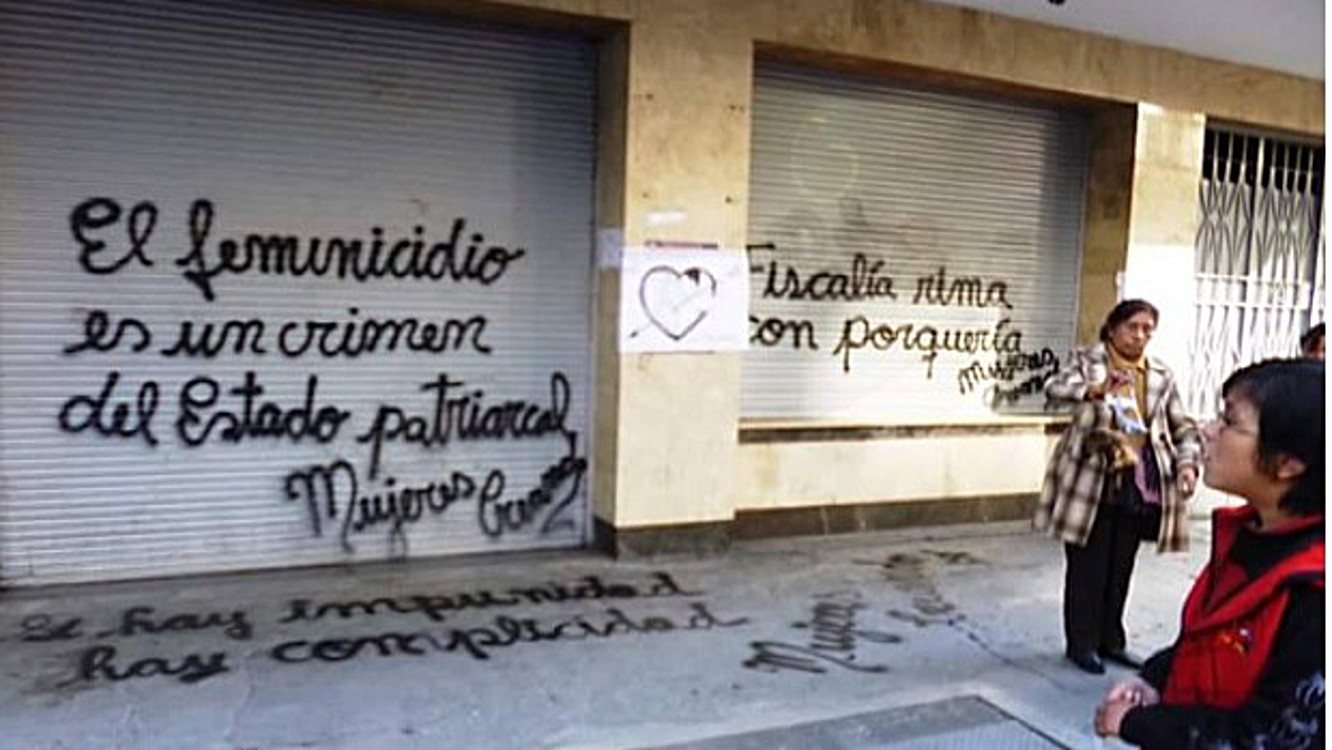 El feminicidio
es un crimen
del Estado patriarcal,
Mujeres
Fiscalía rima
con porquería
Mujeres
hay impunidad
hay complicidad
Mujeres